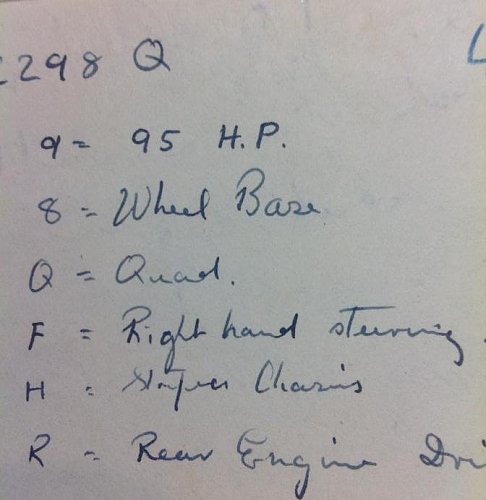 2298 Q L
9 = 95 H.P.
8 = Wheel Base
Q = Quad.
F = Right hand steering.
H = Chassis
R = Rear Engine Dri